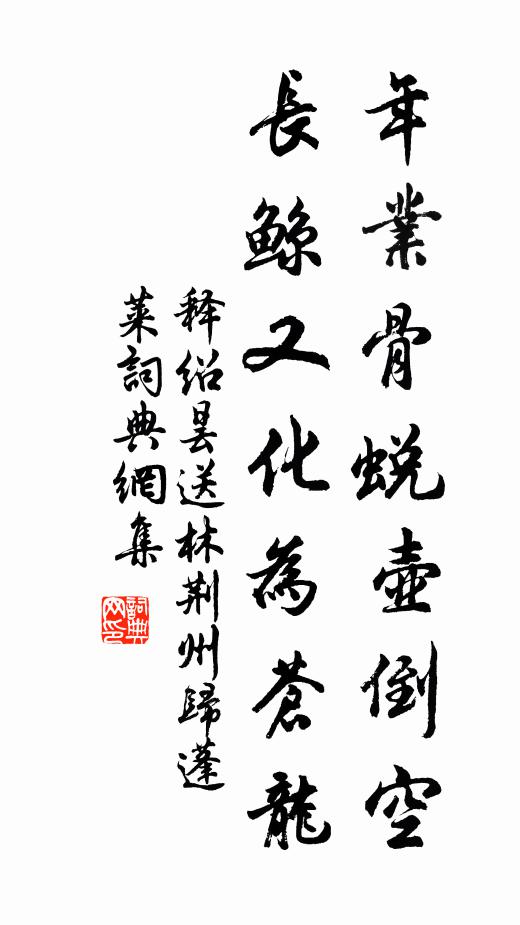 年業骨蛻壺倒空
長鯨又化為蒼龍
释绍昙送林荆州歸蓬
萊詞典網集
詞典网印